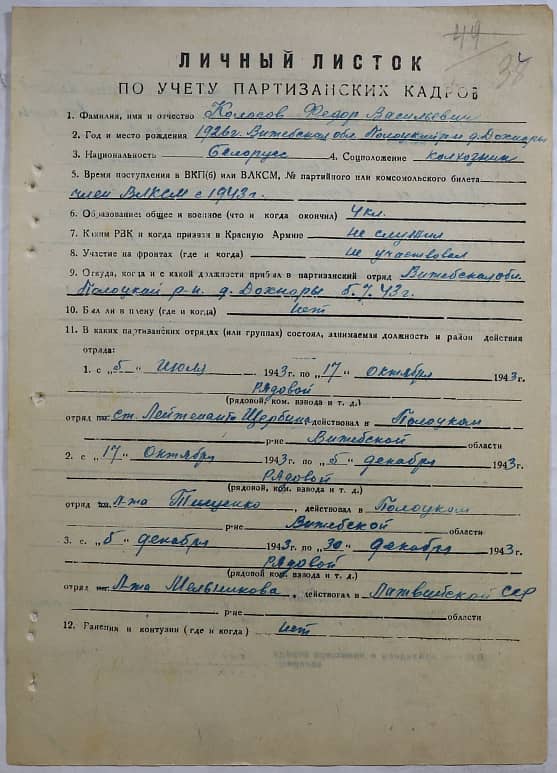 49
34
ЛИЧНЫЙ ЛИСТОК
ПО УЧЕТУ ПАРТИЗАНСКИХ КАДРОВ
1. Фамилия, имя и отчество Колосов Федор Васильевич
2. Год и место рождения 1926г. Витебская обл. Полоцкий р-н д. Дохноры
3. Национальность Белорусс 4. Соцположение колхозник
5. Время поступления в ВКП(б) или ВЛКСМ, № партийного или комсомольского билета
член ВЛКСМ с 1943г.
6. Образование: общее и военное (что и когда окончил) 4 кл.
7. Каким РВК и когда призван в Красную Армию не служил
8. Участие на фронтах (где и когда) не участвовал
9. Откуда, когда и с какой должности прибыл в партизанский отряд Витебская обл.
Полоцкий р-н. д. Дохноры 5.7.43г.
10. Был ли в плену (где и когда) нет
11. В каких партизанских отрядах (или группах) состоял, занимаемая должность и район действия
отряда:
1. с „5" Июля 1943г. по „17" октября 1943г.
РЯдовой
(рядовой, ком. взвода и т. д.)
отряд ст. Лейтенанта Щербина действовал в Полоцком
р-не Витебской области
2. с „17" Октября 1943г. по „5" декабря 1943г.
РЯдовой
(рядовой, ком. взвода и т. д.)
отряд Л-та Тищенко, действовал в Полоцком
р-не Витебской области
3. с. „5" декабря 1943г. по „30" декабря 1943г.
РЯдовой
(рядовой ком. взвода и т. д.)
отряд Л-та Мельникова, действовал в Латвийской ССР
р-не области
12. Ранения и контузии (где и когда) нет